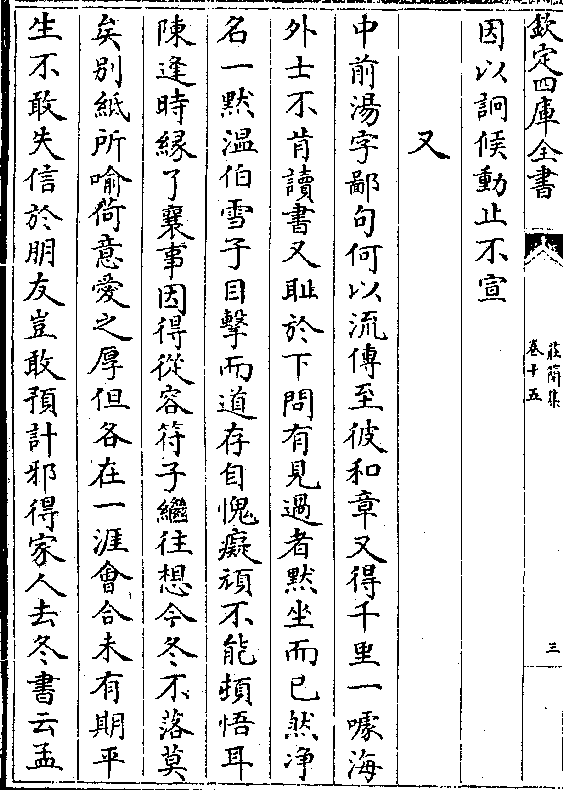 欽定四庫全書
莊簡集
卷十五
三
因以詗候動止不宣
又
中前湯字鄙句何以流傳至彼和章又得千里一噱海
外士不肯讀書又耻於下問有見過者黙坐而已然浄
名一黙温伯雪子目擊而道存自愧癡頑不能頓悟耳
陳逢時縁了襄事因得從容符子繼往想今冬不落莫
矣别紙所喻荷意愛之厚但各在一涯會合未有期平
生不敢失信於朋友豈敢預計邪得家人去冬書云孟